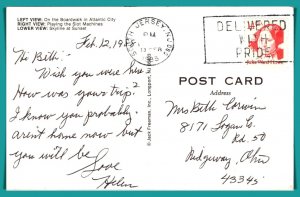 LEFT VIEW: On the Boardwalk in Atlantic City
RIGHT VIEW: Playing the Slot Machines
LOWER VIEW: Skyline at Sunset
Feb. 12, 1988
Hi Beth -
Wish you were here
How was your trip?
I know you probably
arent home now but
you will be.
Love
Helen
SOUTH JERSEY
PM
DELIVERED
WITH
PRIDE
POST CARD
Address
Mrs Beth Corwin
8171 Logan Co.
Rd. 50
Ridgeway, Ohio
43345